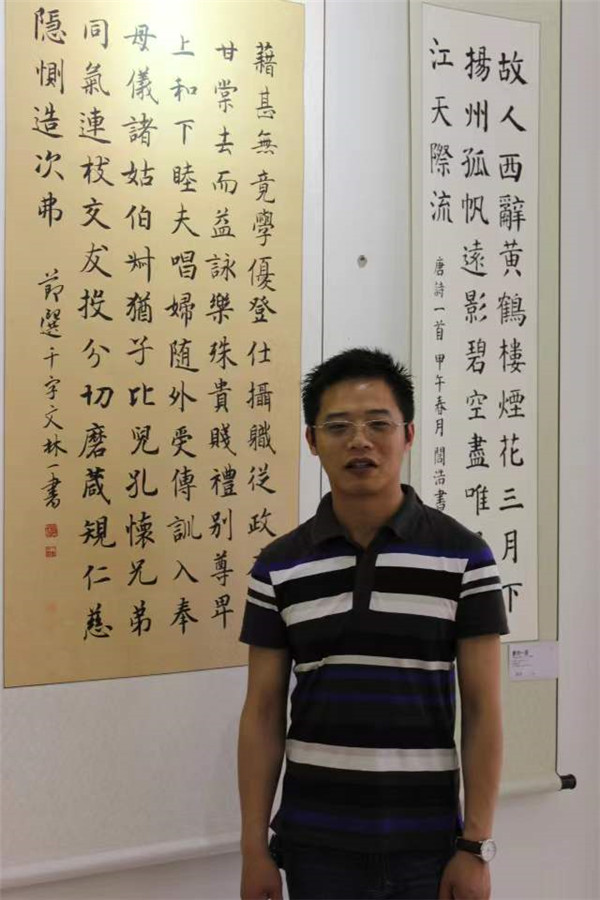 故人西辭黃鶴樓煙花三月下
揚州孤帆遠影碧空盡唯
江天際流
唐詩一首 甲午春月 閻浩書
藉甚無竟學優登仕攝職從政
甘棠去而益詠樂殊貴賤禮別尊卑
上和下睦夫唱婦隨外受傳訓入奉
母儀諸姑伯叔猶子比兒孔懷兄弟
同氣連枝交友投分切磨箴規仁慈
隱惻造次弗
節選千字文林一書